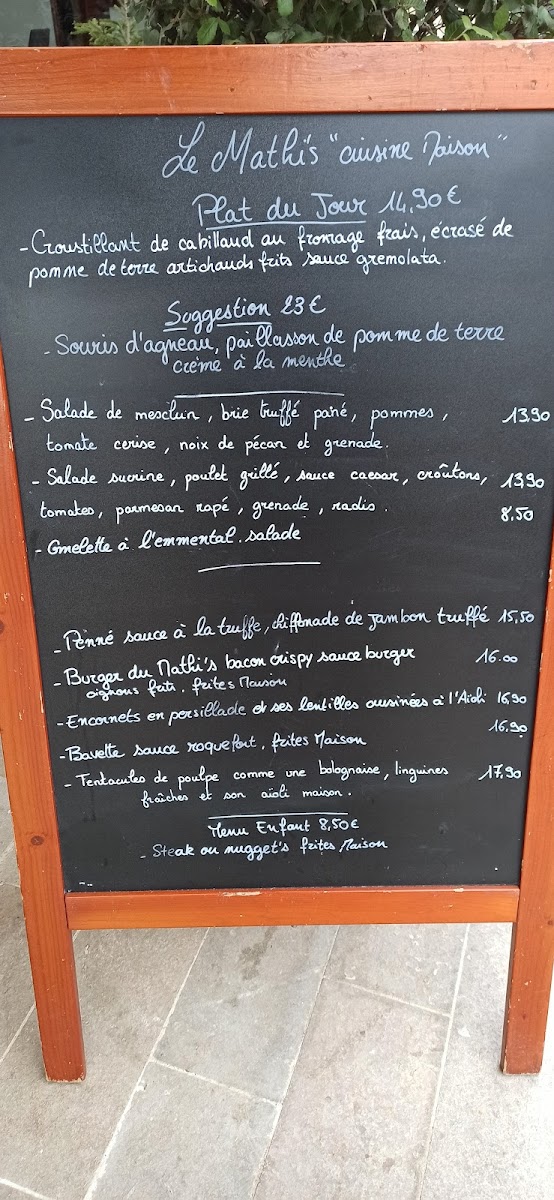 Le Mathi's "cuisine Maison"
Plat du Jour 14,90€
- Croustillant de cabillaud au fromage frais, écrasé de
pomme de terre artichauds frits sauce gremolata.
Suggestion 23€
- Souris d'agneau, paillasson de pomme de terre
crème à la menthe
- Salade de mesclun, brie truffé pané, pommes, 13,90
tomate cerise, noix de pécan et grenade.
- Salade sucrine, poulet grillé, sauce caesar, croûtons, 13,90
tomates, parmesan rapé, grenade, radis.
- Omelette à l'emmental. salade 8,50
- Penné sauce à la truffe, chiffonade de jambon truffé 15,50
- Burger du Mathi's bacon crispy sauce burger 16.00
oignons frits, frites Maison
- Encornets en persillade et ses lentilles cuisinées à l'Aïoli 16,90
- Bavette sauce roquefort, frites Maison 16.90
- Tentacules de poulpe comme une bolognaise, linguines 17,90
fraîches et son aïoli maison.
Menu Enfant 8,50€
- Steak ou nugget's frites Maison